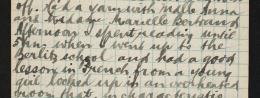 off. Had a yarn with Mdlle Anna
and Madam Marielle Bertrand
Afternoon I spent reading until
5 pm when I went up to the
Berlitz school and had a good
lesson in French from a young
girl locked up in an overheated
room that in characteristic